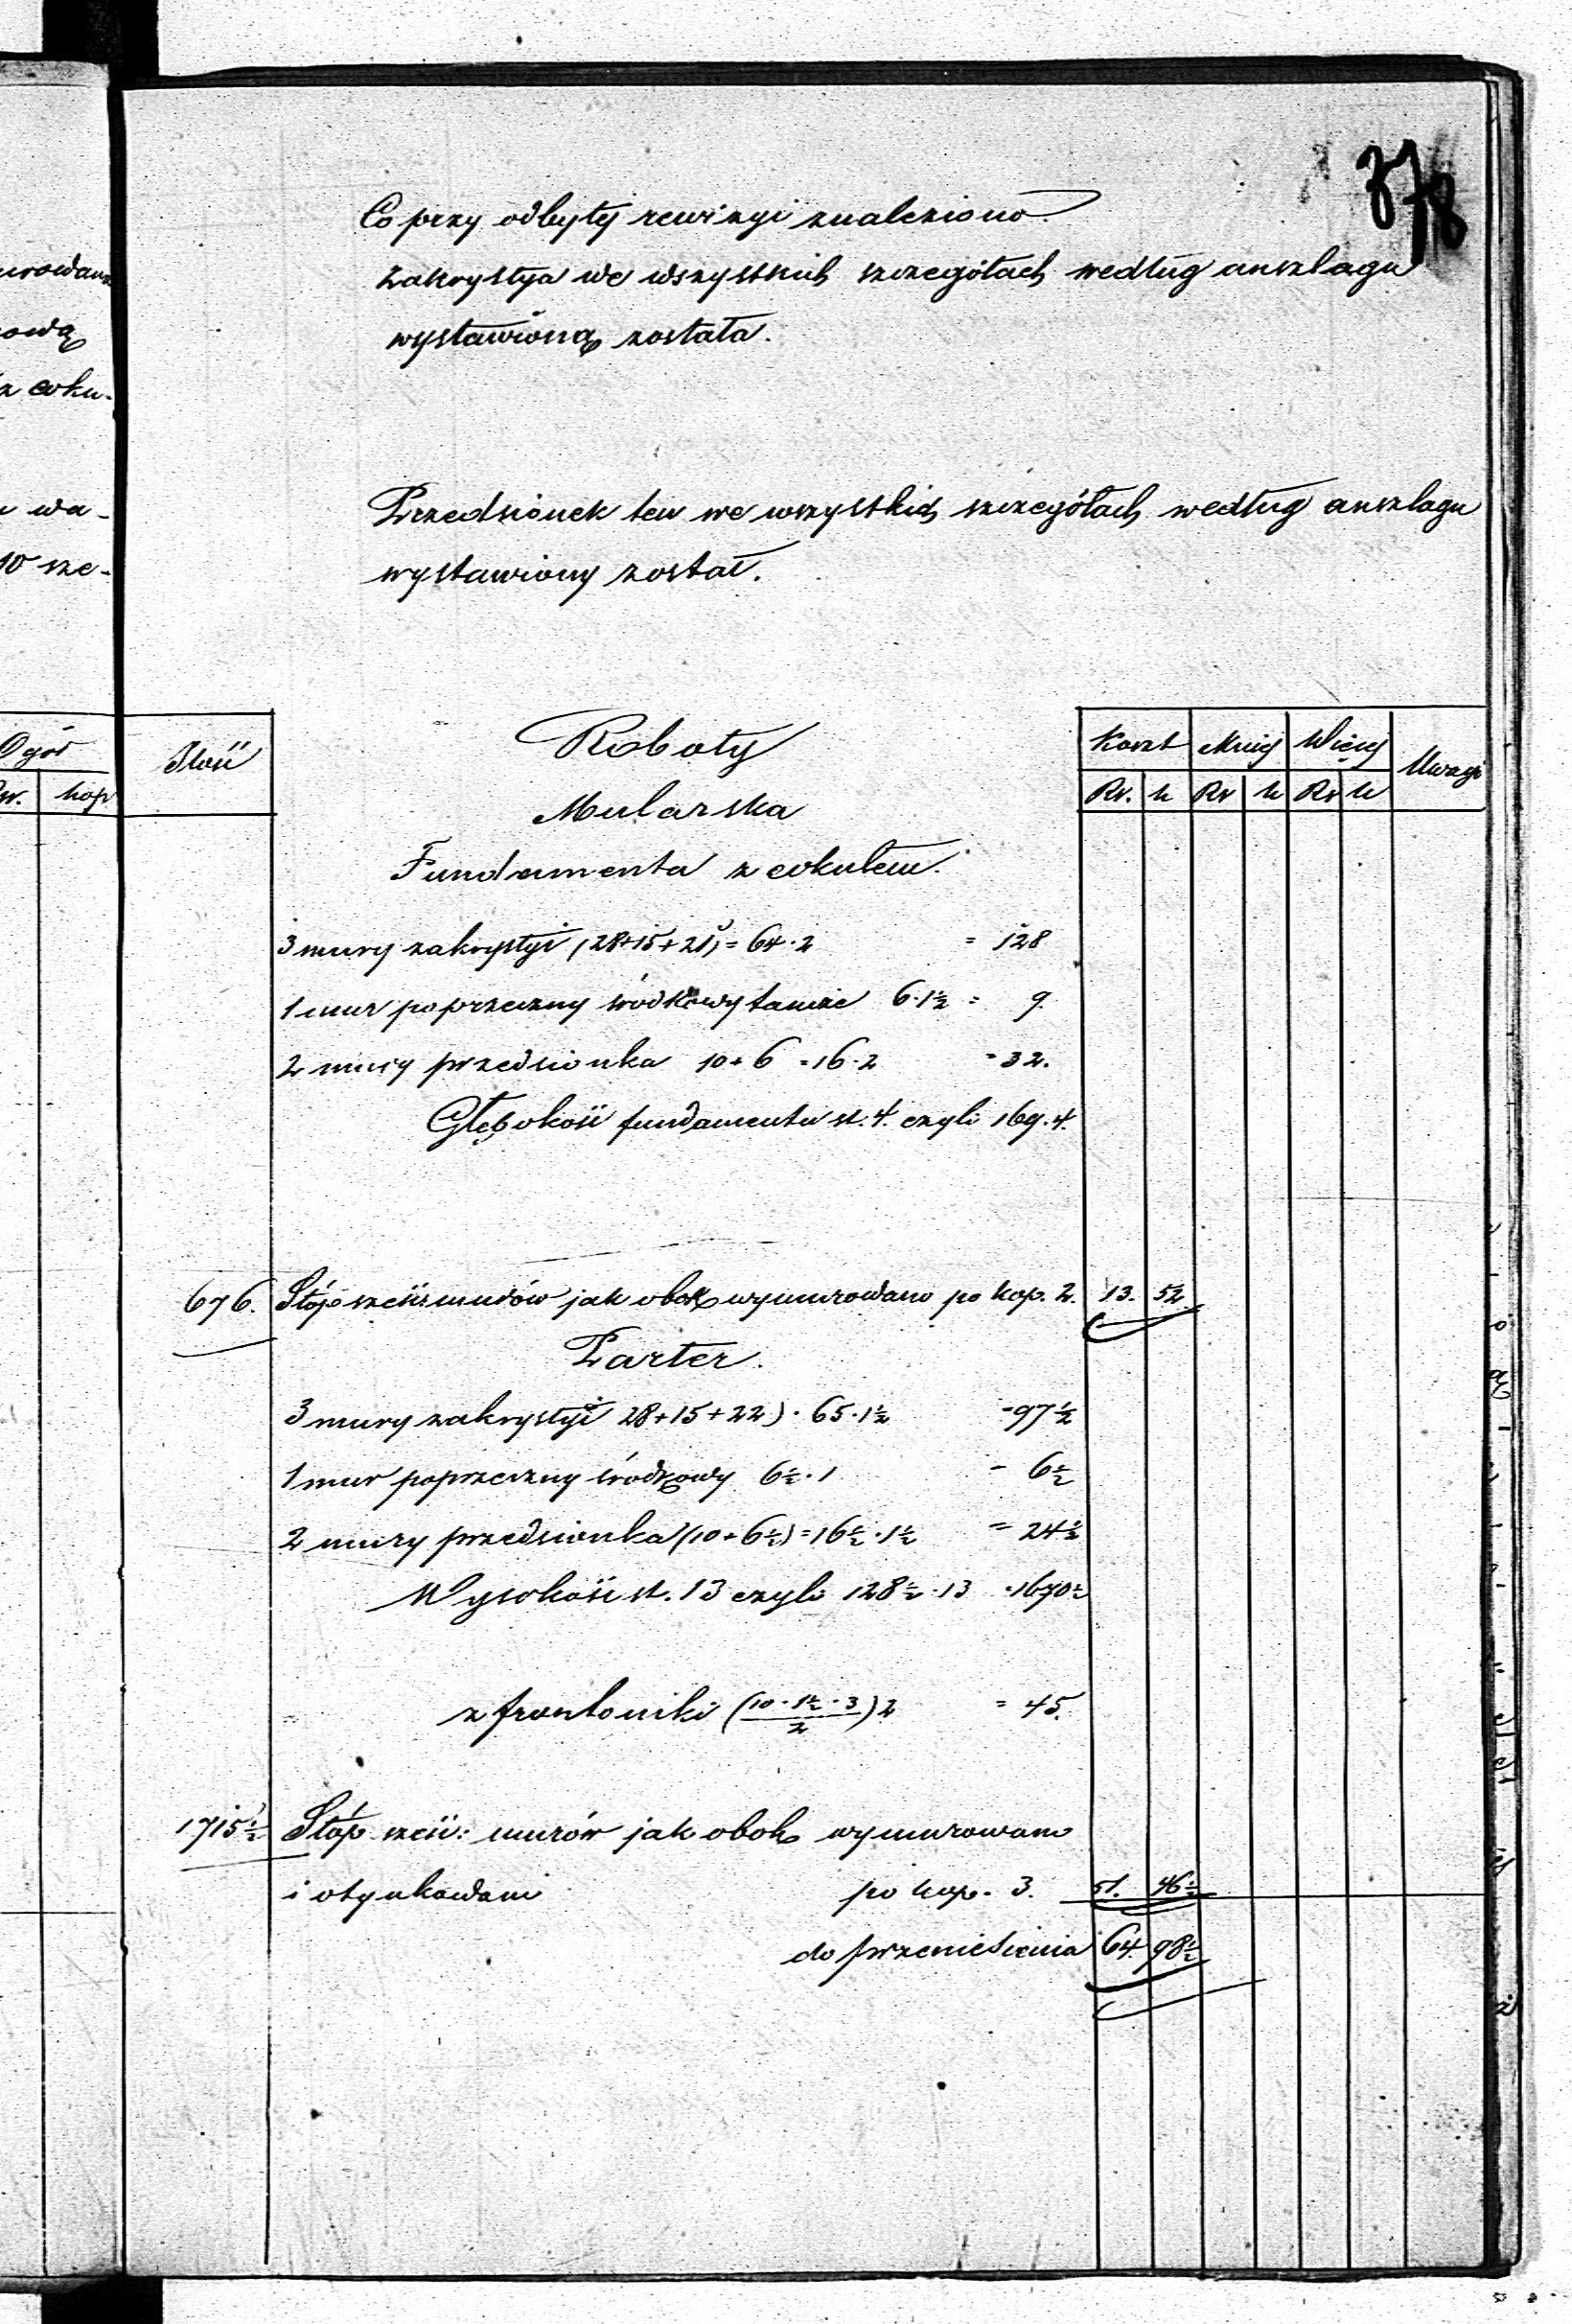 378
Co przy odbytej rewizyi znaleziono
Zakrystya we wszystkich szczegółach według anszlagu
wystawioną została.
Przedsionek ten we wszystkich szczegółach według anszlagu
wystawiony został.
urowan
ową
z coku-
wa-
10 sze-
Ogół
kop
Ilość
Roboty
Koszt Mniej Więcej Uwagi
Rs. k Rs k Rs k
Mularska
Fundamenta z cokułem.
3 mury zakrystyi (28+15+21) = 64·2 = 128
1 mur poprzeczny środkowy tamże 6·1½ = 9
2 mury przedsionka 10+6 =16·2 =32.
Głębokość fundamentu st. 4. czyli 169.4.
676. Stóp sześć murów jak obok wymurowano po kop. 2. 13. 52
Parter.
3 mury zakrystyi 28+15+22) · 65·1½ =97½
1 mur poprzeczny środkowy 6½·1 - 6½
2 mury przedsionka (10+6½)=16½·1½ = 24½
Wysokość st. 13 czyli 128½·13 ·1670½
2 frontoniki (10·1½·3/2)2 = 45.
1715½ Stóp sześć: murów jak obok wymurowano
i otynkowani po kop. 3. 51. 46½
do przeniesienia 64 98½